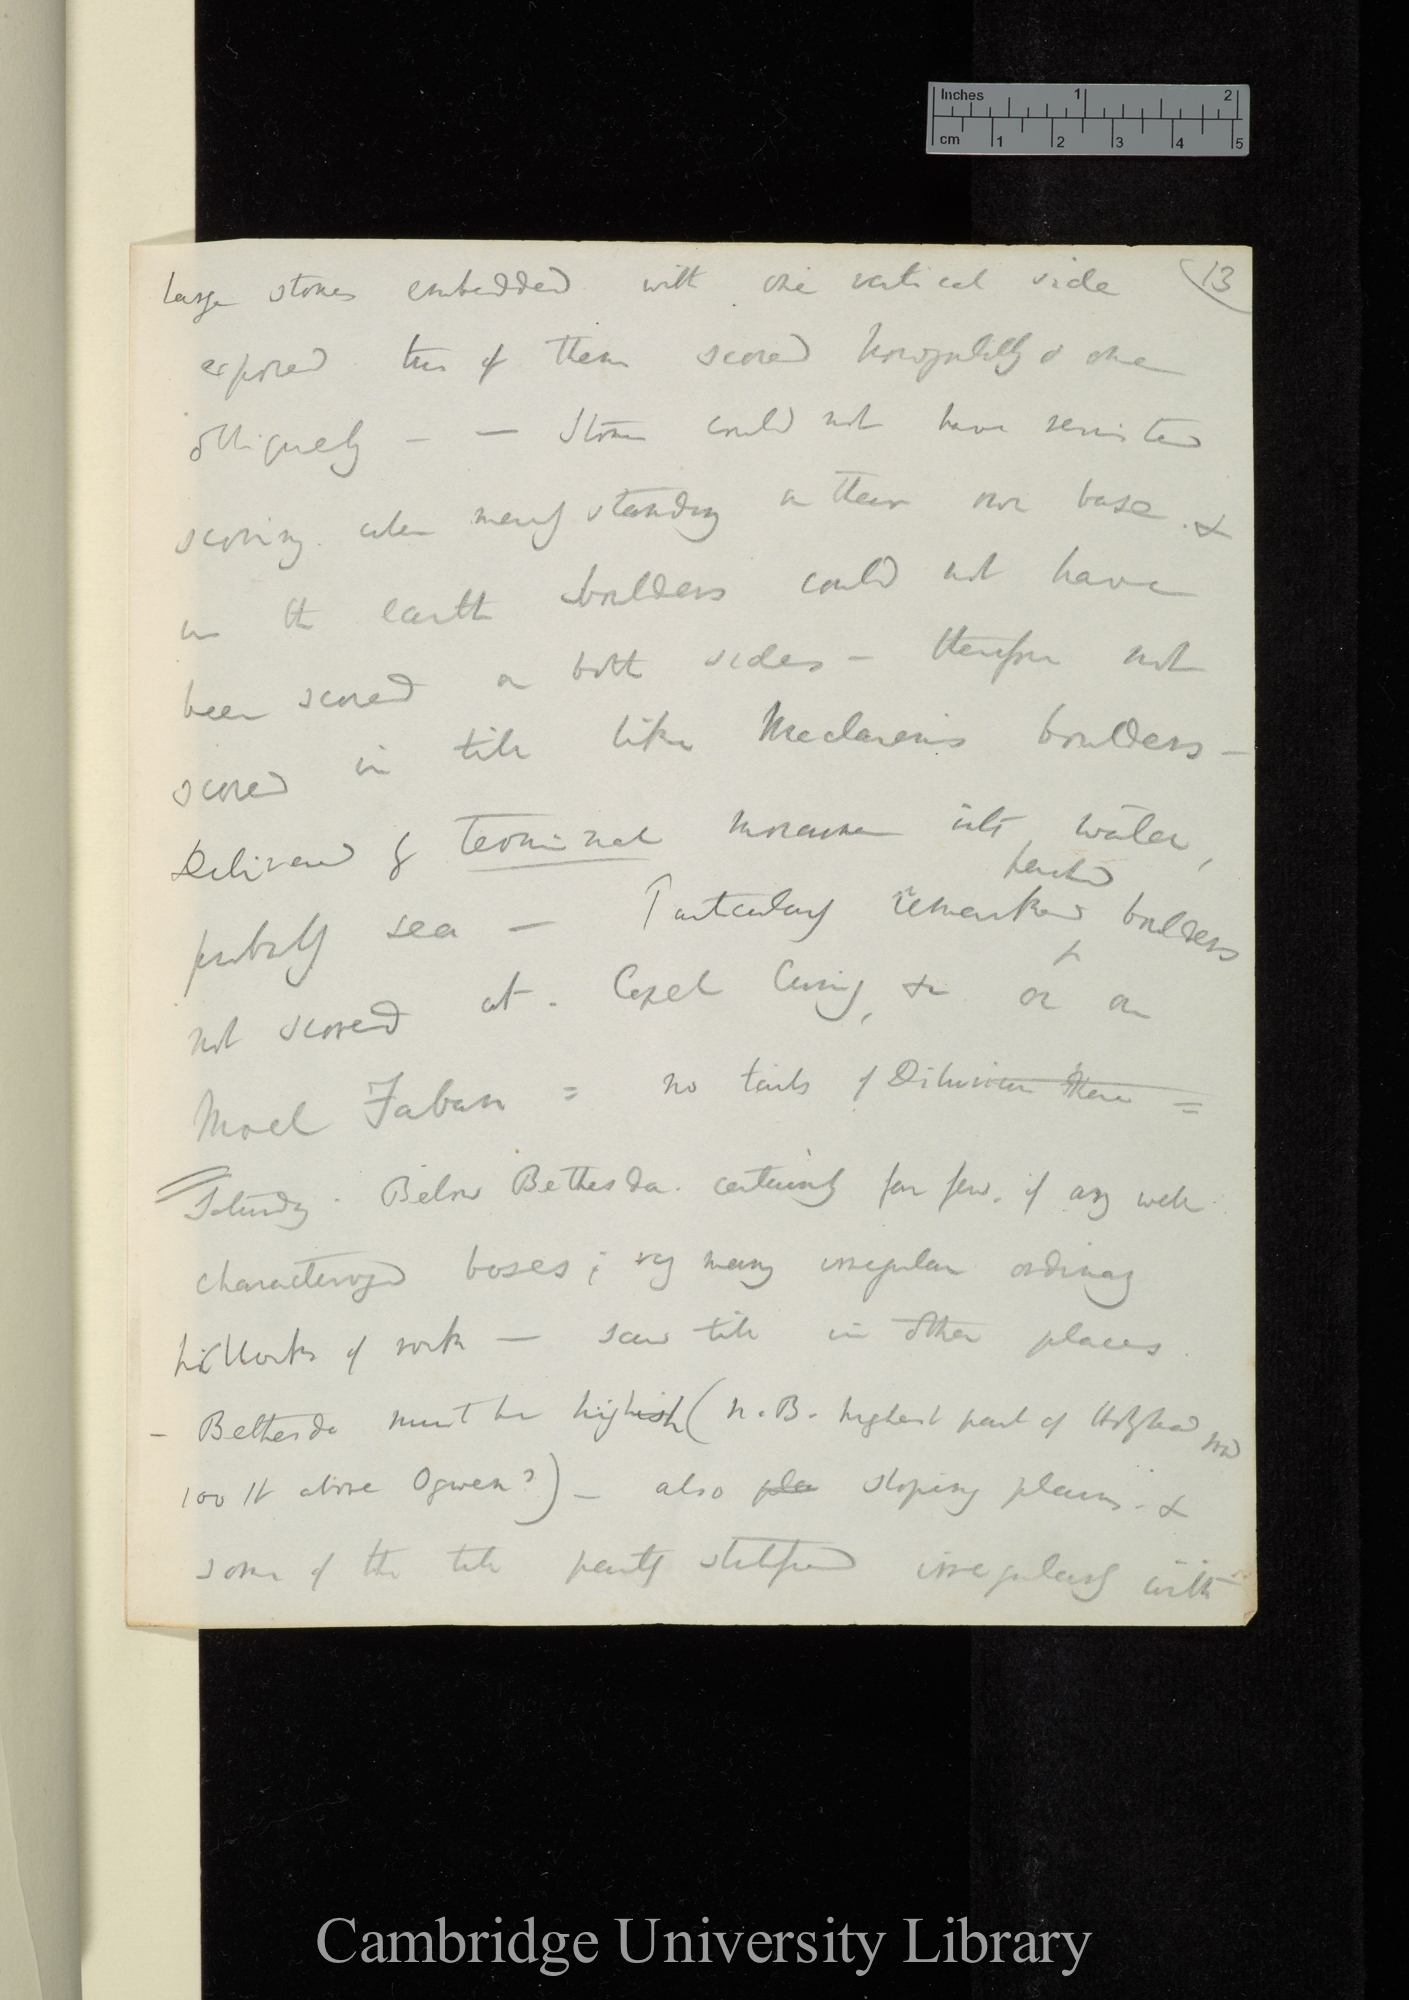 Inches 1 2
cm 1 2 3 4 5
13
large stones embedded with one vertical side
exposed two of them scored horizontally & one
obliquely — — Stones could not have resisted
scoring when merely standing on their own base. &
in the earth boulders could not have
been scored on both sides — therefore not
scored in till like Maclarens boulders —
Delivered by terminal moraine into water,
perched
probably sea — Particularly remarked boulders
not scored at Capel Curig, & or on
Moel Faban = no tails of Diluvium there =
Saturday. Below Bethesda. certainly far few, if any well
characterized bosses; very many irregular ordinary
hillocks of rock — saw till in other places
— Bethesda must be highish (N.B. highest part of Holyhead road
100 ft above Ogwen?) — also pla sloping plains. &
some of the till partly stratified irregularly with
Cambridge University Library